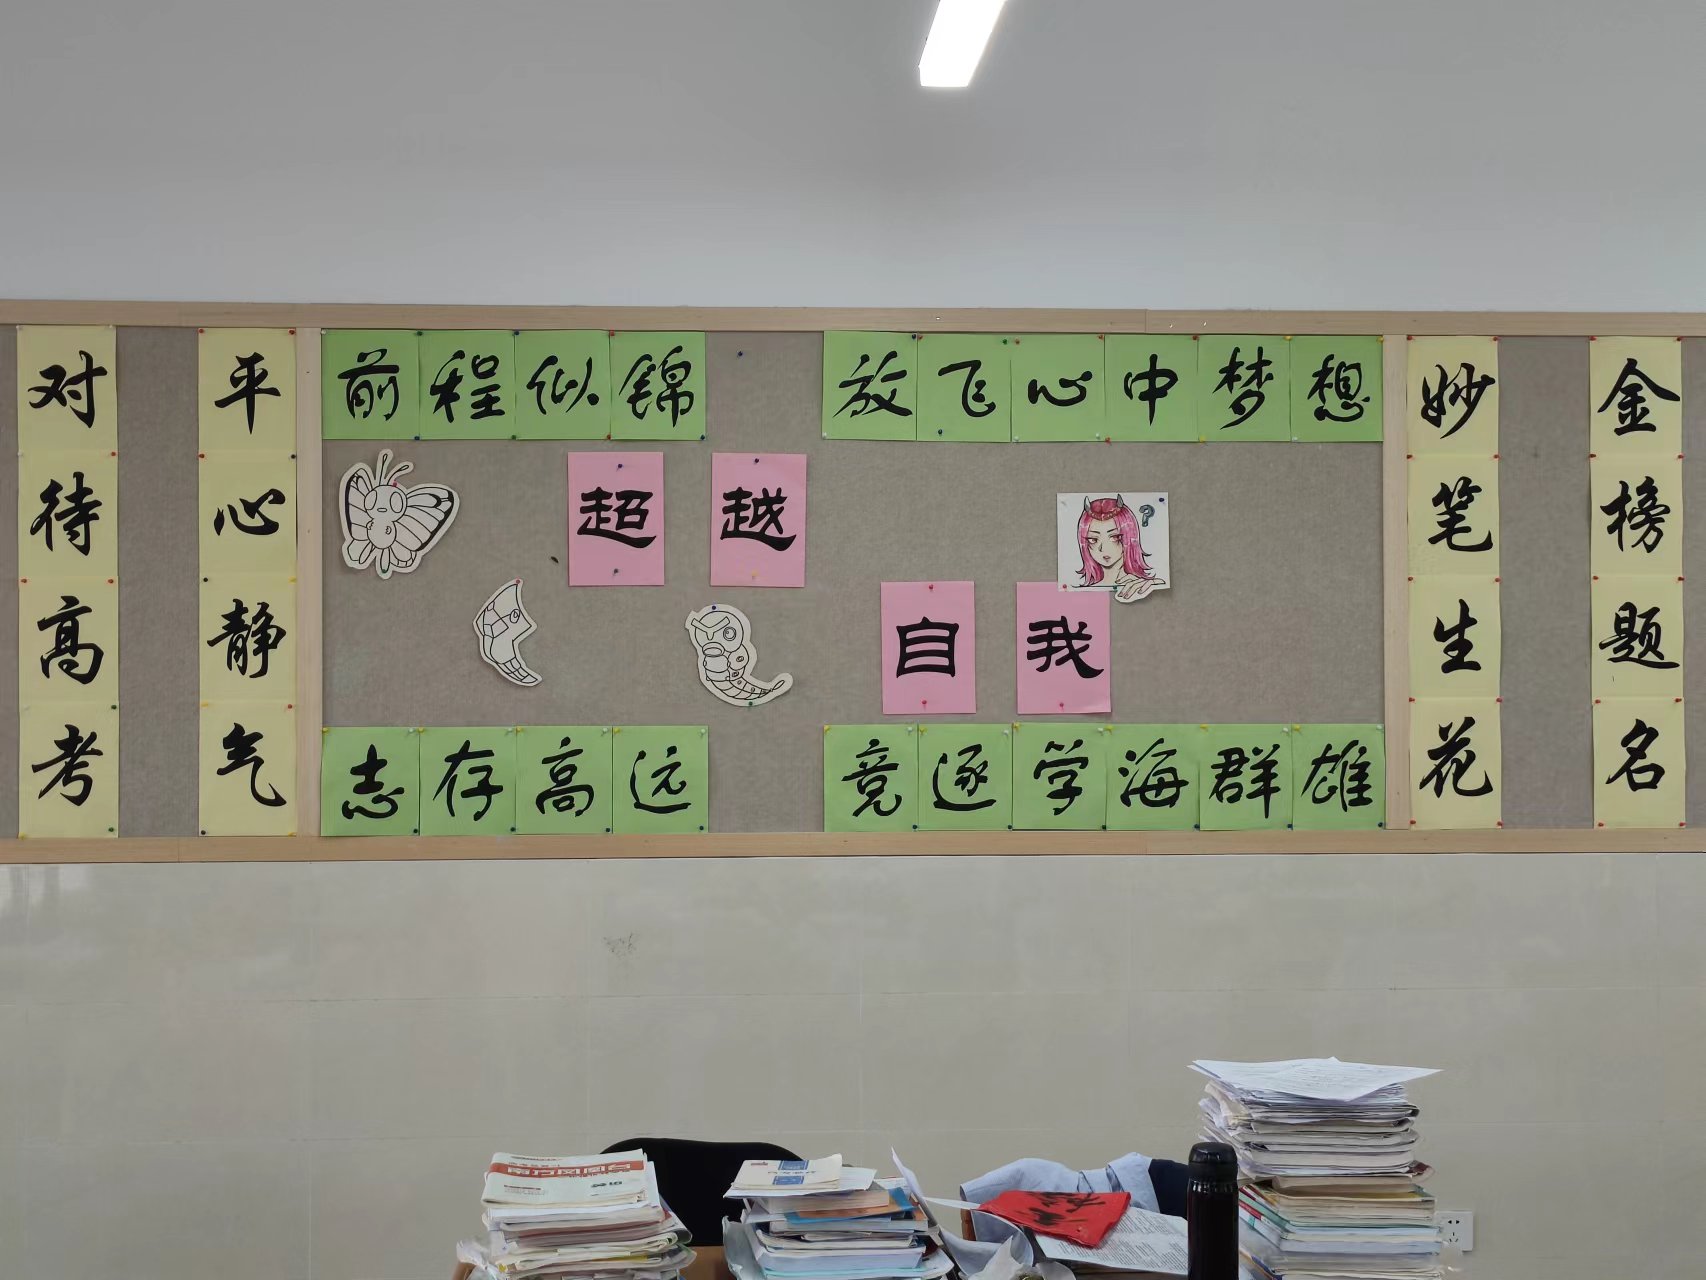 对待高考
平心静气
前程似锦
放飞心中梦想
超越
自我
?
志存高远
竞逐学海群雄
妙笔生花
金榜题名
南方凤凰台
英语